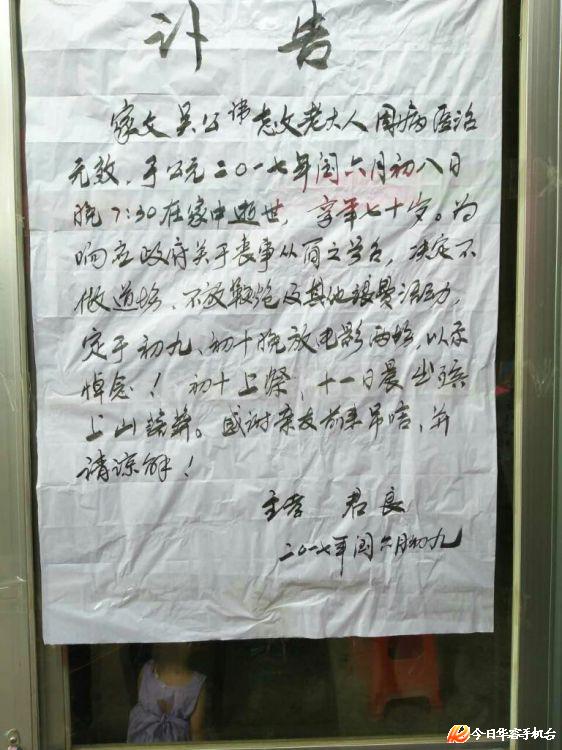 讣 告
家父吴公讳志文老大人因病医治
无效,于公元二〇一七年闰六月初八日
晚7:30在家中逝世,享年七十岁。为
响应政府关于丧事从简之号召,决定不
做道场、不放鞭炮及其他浪费活动,
定于初九、初十晚放电影两场,以示
悼念!初十上祭,十一日晨出殡
上山安葬。感谢亲友前来吊唁,并
请谅解!
主孝 君良
二〇一七年闰六月初九
今日华容手机台